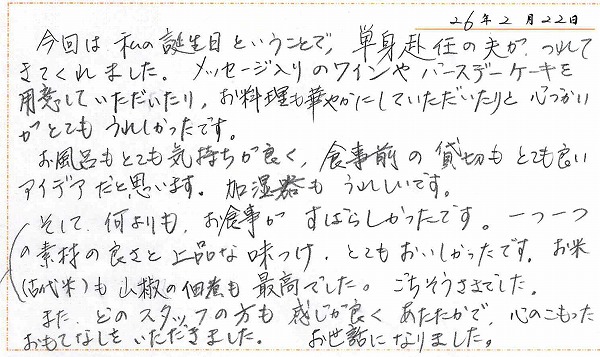 26年2月22日
今回は私の誕生日ということで、単身赴任の夫が、つれて
きてくれました。メッセージ入りのワインやバースデーケーキを
用意していただいたり、お料理も華やかにしていただいたりと心づかい
がとてもうれしかったです。
お風呂もとても気持ちが良く、食事前の貸切もとても良い
アイデアだと思います。加湿器もうれしいです。
そして、何よりも、お食事がすばらしかったです。一つ一つ
の素材の良さと上品な味つけ、とてもおいしかったです。お米
(古代米)も山椒の佃煮も最高でした。ごちそうさまでした。
また、どのスタッフの方も感じが良くあたたかで、心のこもった
おもてなしをいただきました。お世話になりました。